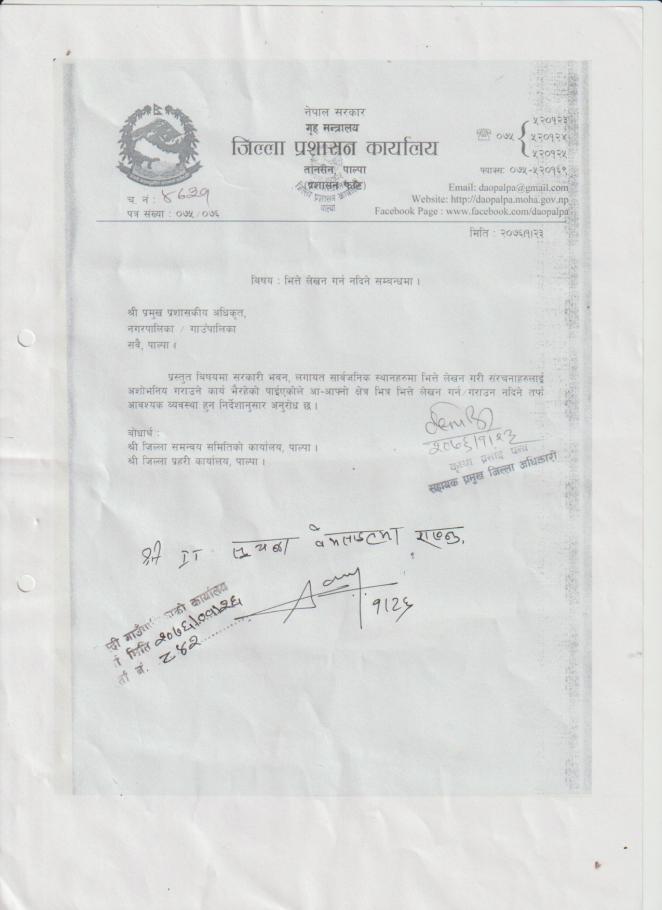 नेपाल सरकार
गृह मन्त्रालय
जिल्ला प्रशासन कार्यालय
तानसेन, पाल्पा
(प्रशासन फाँट)
जिल्ला प्रशासन कार्यालय
पाल्पा
☏ ०७५
५२०१२३
५२०१२४
५२०१२५
फ्याक्स: ०७५-५२०१६९
Email: daopalpa@gmail.com
Website: http://daopalpa.moha.gov.np
Facebook Page : www.facebook.com/daopalpa
च. नं :
पत्र संख्या : ०७५/०७६
मिति : २०७६/१/२३
विषय : भित्ते लेखन गर्न नदिने सम्बन्धमा ।
श्री प्रमुख प्रशासकीय अधिकृत,
नगरपालिका / गाउँपालिका
सबै, पाल्पा ।
प्रस्तुत बिषयमा सरकारी भवन, लगायत सार्वजनिक स्थानहरुमा भित्ते लेखन गरी संरचनाहरुलाई
अशोभनिय गराउने कार्य भैरहेको पाईएकोले आ-आफ्नो क्षेत्र भित्र भित्ते लेखन गर्न/गराउन नदिने तर्फ
आवश्यक व्यवस्था हुन निर्देशानुसार अनुरोध छ ।
बोधार्थ :
श्री जिल्ला समन्वय समितिको कार्यालय, पाल्पा ।
श्री जिल्ला प्रहरी कार्यालय, पाल्पा ।
२०७६/१/२३
कृष्ण प्रसाद पन्थ
सहायक प्रमुख जिल्ला अधिकारी
श्री IT सूचना वेभसाइटमा राख्नु,
१/२६
कार्यालय
मिति २०७६/०१/२६
नं. ८४२